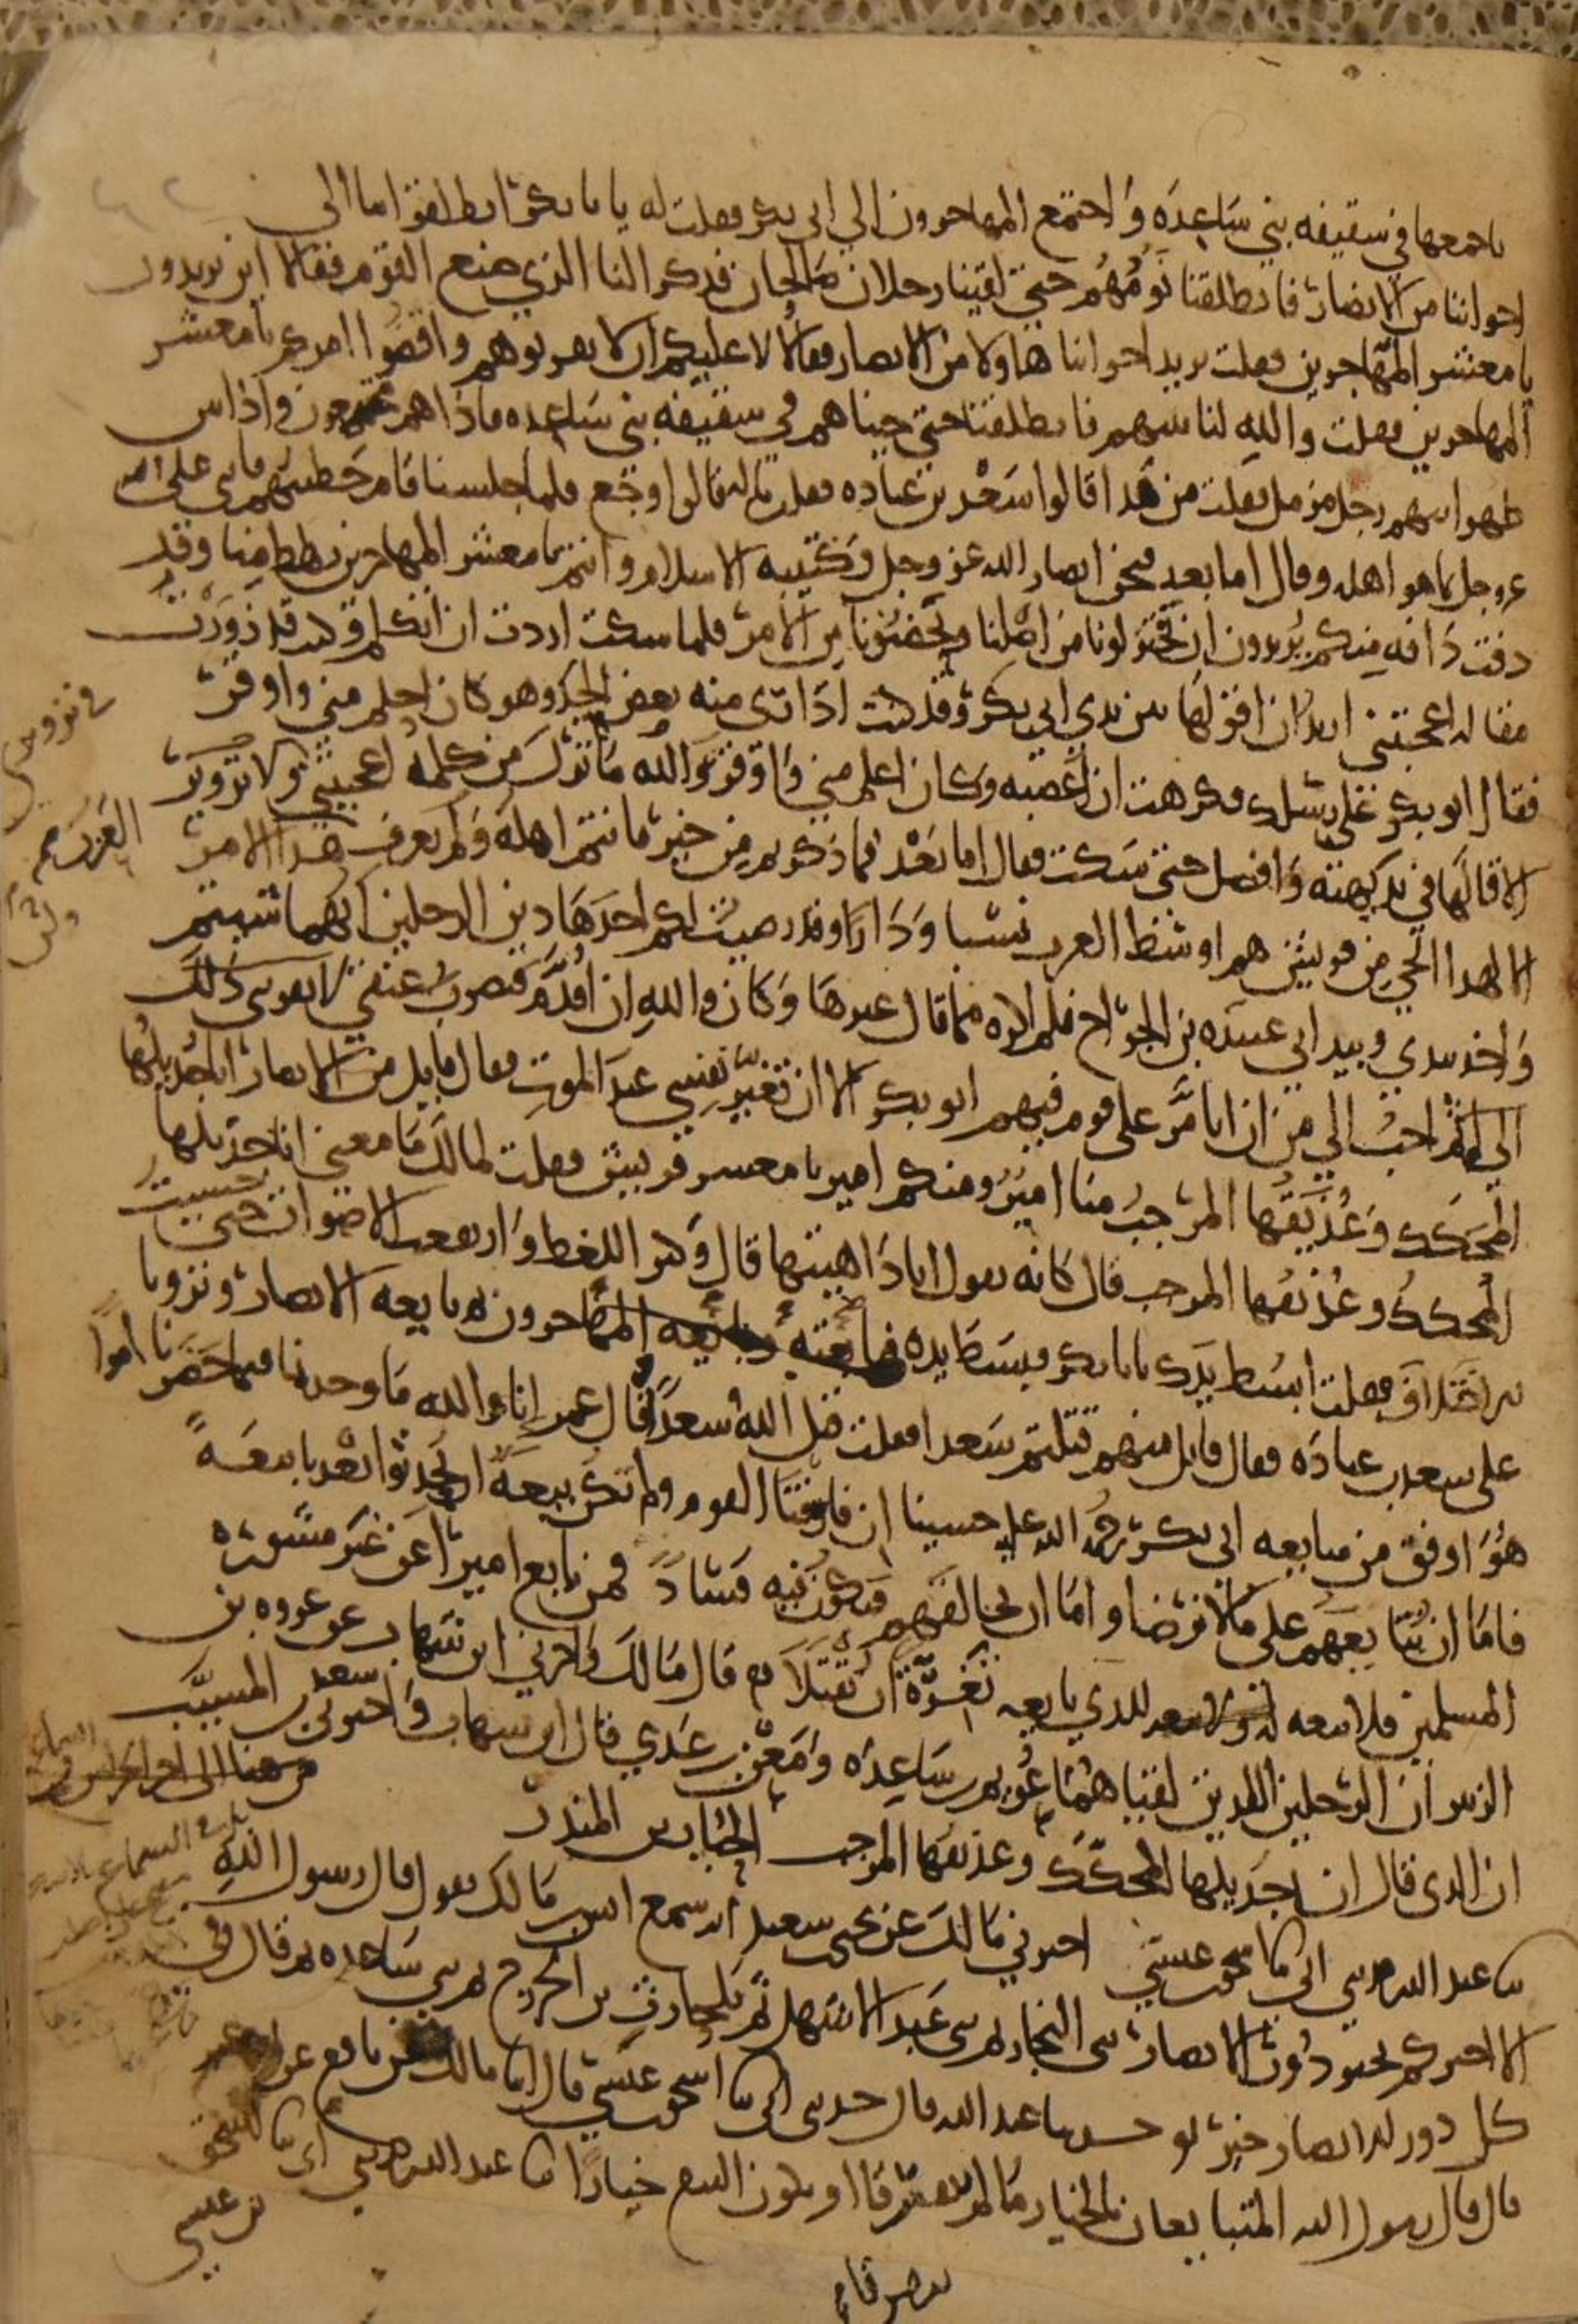 باجمعها في سقيفه بني ساعده واجتمع المهاجرون الي ابي بكر فقلت له يا با بكر انطلق بنا الى
اخواننا من الانصار فانطلقنا نؤمهم حتى لقينا رجلان صالحان فذكر النا الذي صنع القوم فقالا اين تريدون
يا معشر المهاجرين فقلت نريد اخواننا هاولا من الانصار فقالا لا عليكم ان لا تقربوهم واقضوا امركم يا معشر
المهاجرين فقلت والله لناتينهم فانطلقنا حتى جيناهم في سقيفه بني ساعده فاذا هم مجتمعون واذا بين
ظهرانيهم رجل مزمل فقلت من هذا قالوا سعد بن عباده فقلت ما له قالوا وجع فلما جلسنا قام خطيبهم فاثنى على الله
عز وجل بما هو اهله وقال اما بعد فنحن انصار الله عز وجل وكتيبه الاسلام وانتم يا معشر المهاجرين رهط منا وقد
دفت دافه منكم يريدون ان يختزلونا من اصلنا ويحضنونا من الامر فلما سكت اردت ان اتكلم وكنت قد زورت
مقاله اعجبتني اريد ان اقولها بين يدي ابي بكر وقد كنت اداري منه بعض الحد وهو كان احلم مني واوقر
فقال ابو بكر على رسلك فكرهت ان اغضبه وكان اعلم مني واوقر والله ما ترك من كلمه اعجبتني في تزويري
الا قالها في بديهته وافضل حتى سكت فقال اما بعد فما ذكرتم من خير فانتم اهله ولم تعرف العرب هذا الامر
الا لهذا الحي من قريش هم اوسط العرب نسبا ودارا وقد رضيت لكم احد هاذين الرجلين ايهما شيتم
واخذ بيدي وبيد ابي عبيده بن الجراح فلم اكره مما قال غيرها وكان والله ان اقدم فتضرب عنقي لا يقربني ذلك
الي اثم احب الي من ان اتامر على قوم فيهم ابو بكر الا ان تغير نفسي عند الموت فقال قايل من الانصار انا جذيلها
المحكك وعذيقها المرجب منا امير ومنكم امير يا معشر قريش فقلت لمالك ما معنى انا جذيلها
المحكك وعذيقها المرجب قال كانه يقول انا داهيتها قال وكثر اللغط وارتفعت الاصوات حتى خشيت
الاختلاف فقلت ابسط يدك يا با بكر فبسط يده فبايعته وبايعه المهاجرون ثم بايعه الانصار ونزونا
على سعد بن عباده فقال قايل منهم قتلتم سعدا فقلت قتل الله سعدا وقال عمر انا والله ما وجدنا فيما حضرنا امرا
هو اوفق من مبايعه ابي بكر رحمه الله عليه خشينا ان فارقنا القوم ولم تكن بيعه ان يحدثوا بعدنا بيعه
فاما ان نتابعهم على ما لا نرضا واما ان نخالفهم فيكون فيه فسادا فمن بايع اميرا عن غير مشوره
المسلمين فلا بيعه له ولا بيعه للذي بايعه تغرة ان يقتلا قال مالك واخبرني ابن شهاب عن عروه بن
الزبير ان الرجلين اللذين لقياهما عويم بن ساعده ومعن بن عدي قال ابن شهاب واخبرني سعيد بن المسيب
ان الذي قال انا جذيلها المحكك وعذيقها المرجب الحباب بن المنذر
ثنا عبد الله حدثني ابي ثنا اسحق بن عيسى اخبرني مالك عن يحيى بن سعيد انه سمع انس بن مالك يقول قال رسول الله
الا اخبركم بخير دور الانصار بني النجار ثم بني عبد الاشهل ثم بلحارث بن الخزرج ثم بني ساعده ثم قال وفي
كل دور الانصار خير حدثنا عبد الله قال حدثني ابي ثنا اسحق بن عيسى قال انا مالك عن نافع عن ابن عمر
قال قال رسول الله المتبايعان بالخيار ما لم يتفرقا او يكون البيع خيارا ثنا عبد الله حدثني ابي ثنا اسحق
بن عيسى